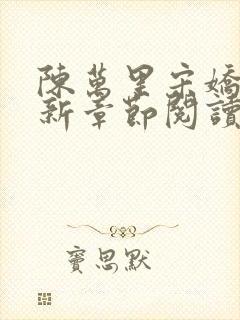 陳萬里宋嬌
新章節閱讀
竇思默